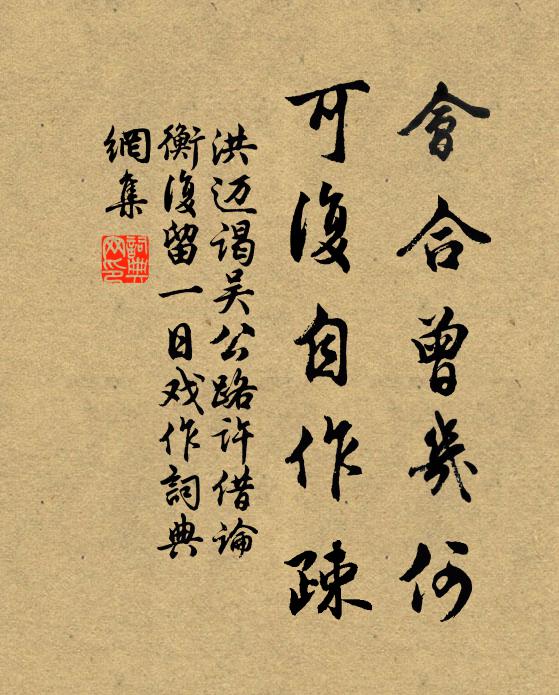 會合曾幾何
可復自作疎
洪迈谒吴公路许借論
衡復留一日戏作詞典
網集
詞典网印